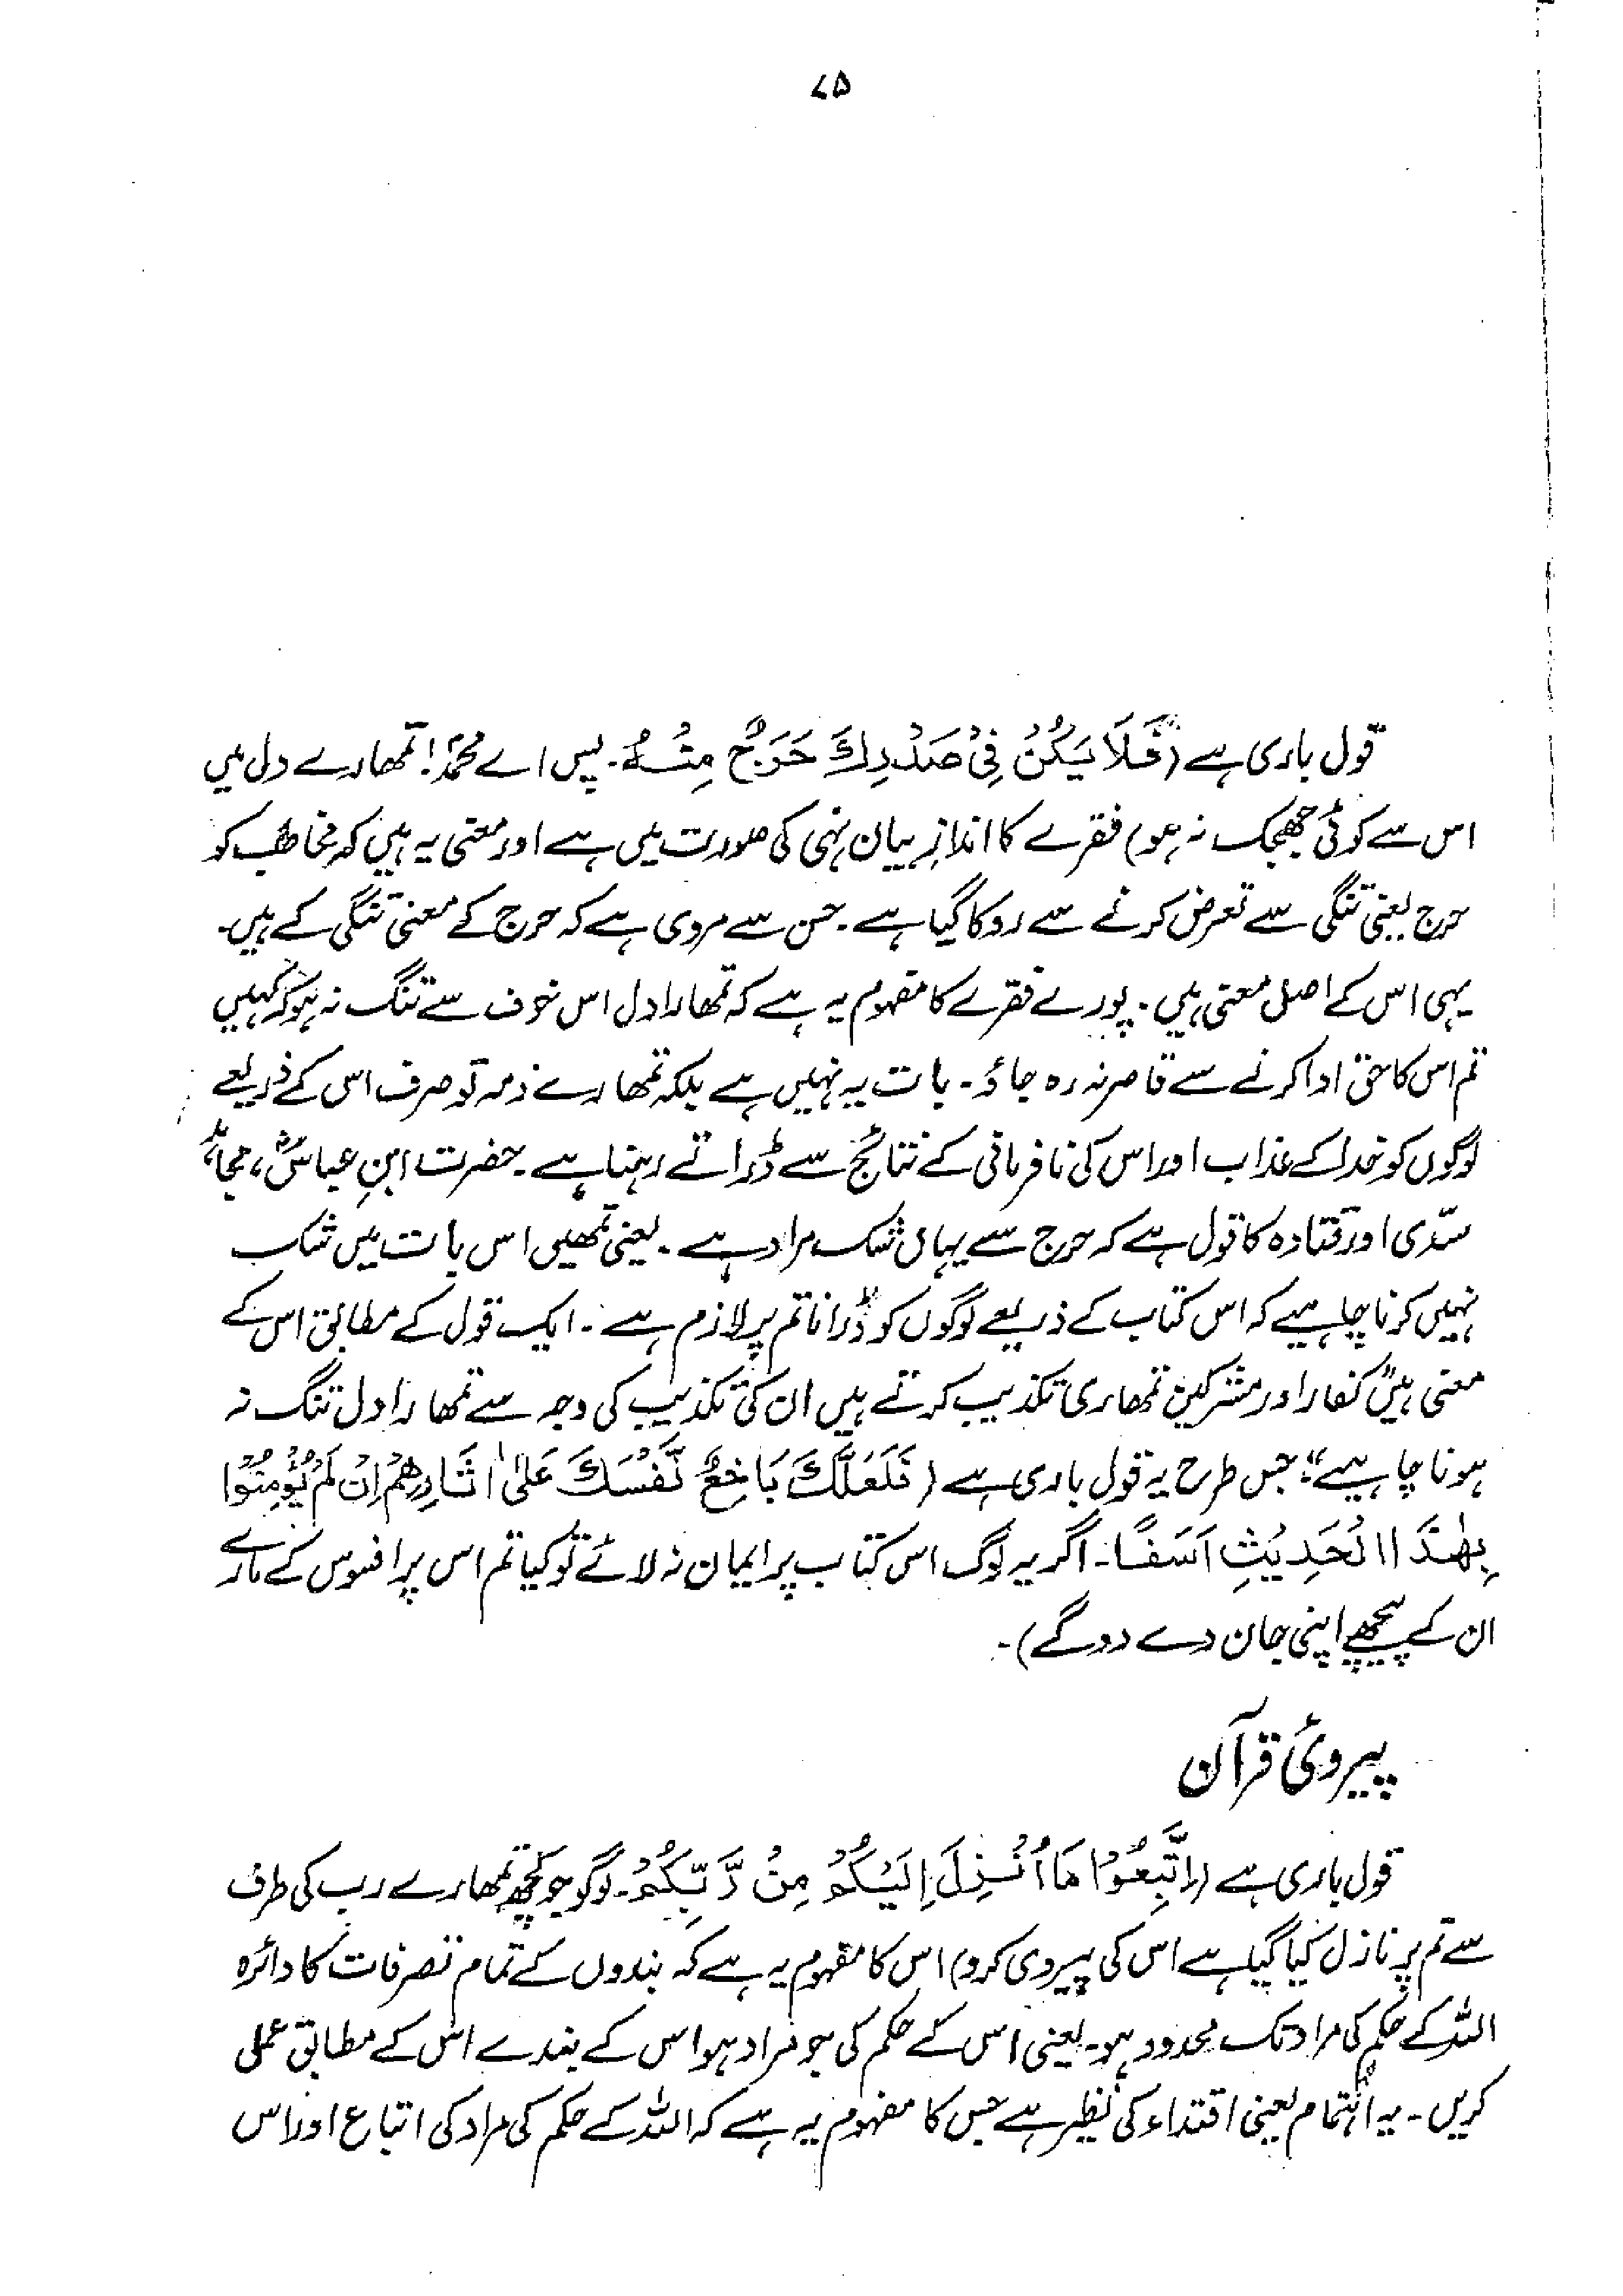 ۷۵
قول باری ہے (فَلَا يَكُنْ فِيْ صَدْرِكَ حَرَجٌ مِنْهُ۔ پس اے محمدؐ! تمھارے دل میں
اس سے کوئی جھجک نہ ہو) فقرے کا اندازِ بیان نہی کی صورت میں ہے اور معنی یہ ہیں کہ مخاطب کو
حرج یعنی تنگی سے تعرض کرنے سے روکا گیا ہے۔ حسن سے مروی ہے کہ حرج کے معنی تنگی کے ہیں۔
یہی اس کے اصل معنی ہیں۔ پورے فقرے کا مفہوم یہ ہے کہ تمھارا دل اس خوف سے تنگ نہ ہو کہ کہیں
تم اس کا حق ادا کرنے سے قاصر نہ رہ جاؤ۔ بات یہ نہیں ہے بلکہ تمھارے ذمہ تو صرف اس کے ذریعے
لوگوں کو خدا کے عذاب اور اس کی نافرمانی کے نتائج سے ڈراتے رہنا ہے۔ حضرت ابنِ عباسؓ، مجاہدؒ،
سدّی اور قتادہ کا قول ہے کہ حرج سے یہاں شک مراد ہے۔ یعنی تمھیں اس بات میں شک
نہیں کرنا چاہیے کہ اس کتاب کے ذریعے لوگوں کو ڈرانا تم پر لازم ہے۔ ایک قول کے مطابق اس کے
معنی ہیں "کفار اور مشرکین تمھاری تکذیب کرتے ہیں ان کی تکذیب کی وجہ سے تمھارا دل تنگ نہ
ہونا چاہیے"؛ جس طرح یہ قول باری ہے (فَلَعَلَّكَ بَاخِعٌ نَّفْسَكَ عَلٰى اٰثَارِهِمْ اِنْ لَمْ يُؤْمِنُوْا
بِهٰذَا الْحَدِيْثِ اَسَفًا۔ اگر یہ لوگ اس کتاب پر ایمان نہ لائے تو کیا تم اس پر افسوس کے مارے
ان کے پیچھے اپنی جان دے دو گے)۔
پیرویٔ قرآن
قول باری ہے (اِتَّبِعُوْا مَا اُنْزِلَ اِلَيْكُمْ مِنْ رَّبِّكُمْ۔ لوگو جو کچھ تمھارے رب کی طرف
سے تم پر نازل کیا گیا ہے اس کی پیروی کرو) اس کا مفہوم یہ ہے کہ بندوں کے تمام تصرفات کا دائرہ
اللہ کے حکم کی مراد تک محدود ہو۔ یعنی اس کے حکم کی جو مراد ہو اس کے بندے اس کے مطابق عمل
کریں۔ یہ ائتمام یعنی اقتداء کی نظیر ہے جس کا مفہوم یہ ہے کہ اللہ کے حکم کی مراد کی اتباع اور اس